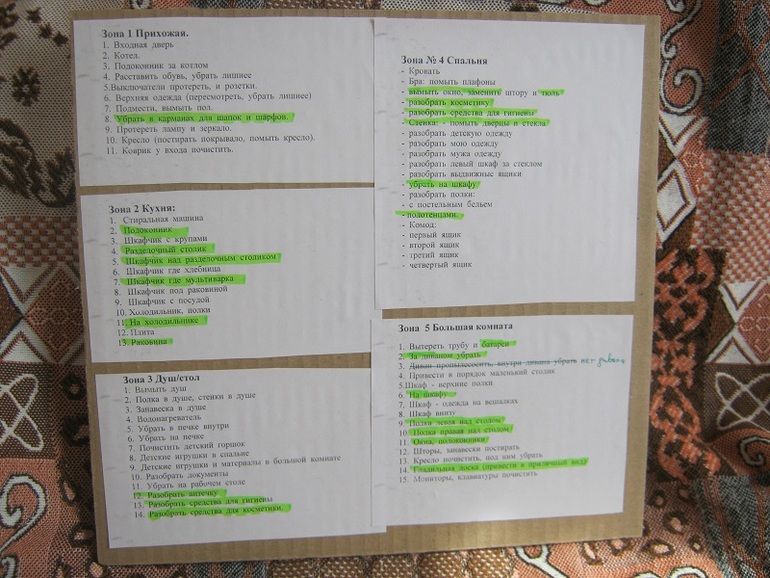 Зона 1 Прихожая.
1. Входная дверь
2. Котел.
3. Подоконник за котлом
4. Расставить обувь, убрать лишнее
5.Выключатели протереть, и розетки.
6. Верхняя одежда (пересмотреть, убрать лишнее)
7. Подмести, вымыть пол.
8. Убрать в карманах для шапок и шарфов.
9. Протереть лампу и зеркало.
10. Кресло (постирать покрывало, помыть кресло).
11. Коврик у входа почистить.
Зона 2 Кухня:
1. Стиральная машина
2. Подоконник
3. Шкафчик с крупами
4. Разделочный столик
5. Шкафчик над разделочным столиком
6. Шкафчик где хлебница
7. Шкафчик где мультиварка
8. Шкафчик под раковиной
9. Шкафчик с посудой
10. Холодильник, полки
11. На холодильнике
12. Плита
13. Раковина
Зона 3 Душ/стол
1. Вымыть душ
2. Полка в душе, стенки в душе
3. Занавеска в душе
4. Водонагреватель
5. Убрать в печке внутри
6. Убрать на печке
7. Почистить детский горшок
8. Детские игрушки в спальне
9. Детские игрушки и материалы в большой комнате
10. Разобрать документы
11. Убрать на рабочем столе
12. Разобрать аптечку
13. Разобрать средства для гигиены
14. Разобрать средства для косметики.
Зона № 4 Спальня
- Кровать
- Бра: помыть плафоны
- вымыть окно, заменить штору и тюль
- разобрать косметику
- разобрать средства для гигиены
- Стенка: - помыть дверцы и стекла
- разобрать детскую одежду
- разобрать мою одежду
- разобрать мужа одежду
- разобрать левый шкаф за стеклом
- разобрать выдвижные ящики
- убрать на шкафу
- разобрать полки:
- с постельным бельем
- полотенцами.
- Комод:
- первый ящик
- второй ящик
- третий ящик
- четвертый ящик
Зона 5 Большая комната
1. Вытереть трубу и батареи
2. За диваном убрать
3. Диван пропылесосить, внутри дивана убрать нет дивана
4. Привести в порядок маленький столик
5.Шкаф - верхние полки
6. На шкафу
7. Шкаф - одежда на вешалках
8. Шкаф внизу
9. Полка левая над столом
10. Полка правая над столом
11. Окна, подоконники
12. Шторы, занавески постирать
13. Кресло почистить, под ним убрать
14. Гладильная доска (привести в приличный вид)
15. Мониторы, клавиатуры почистить